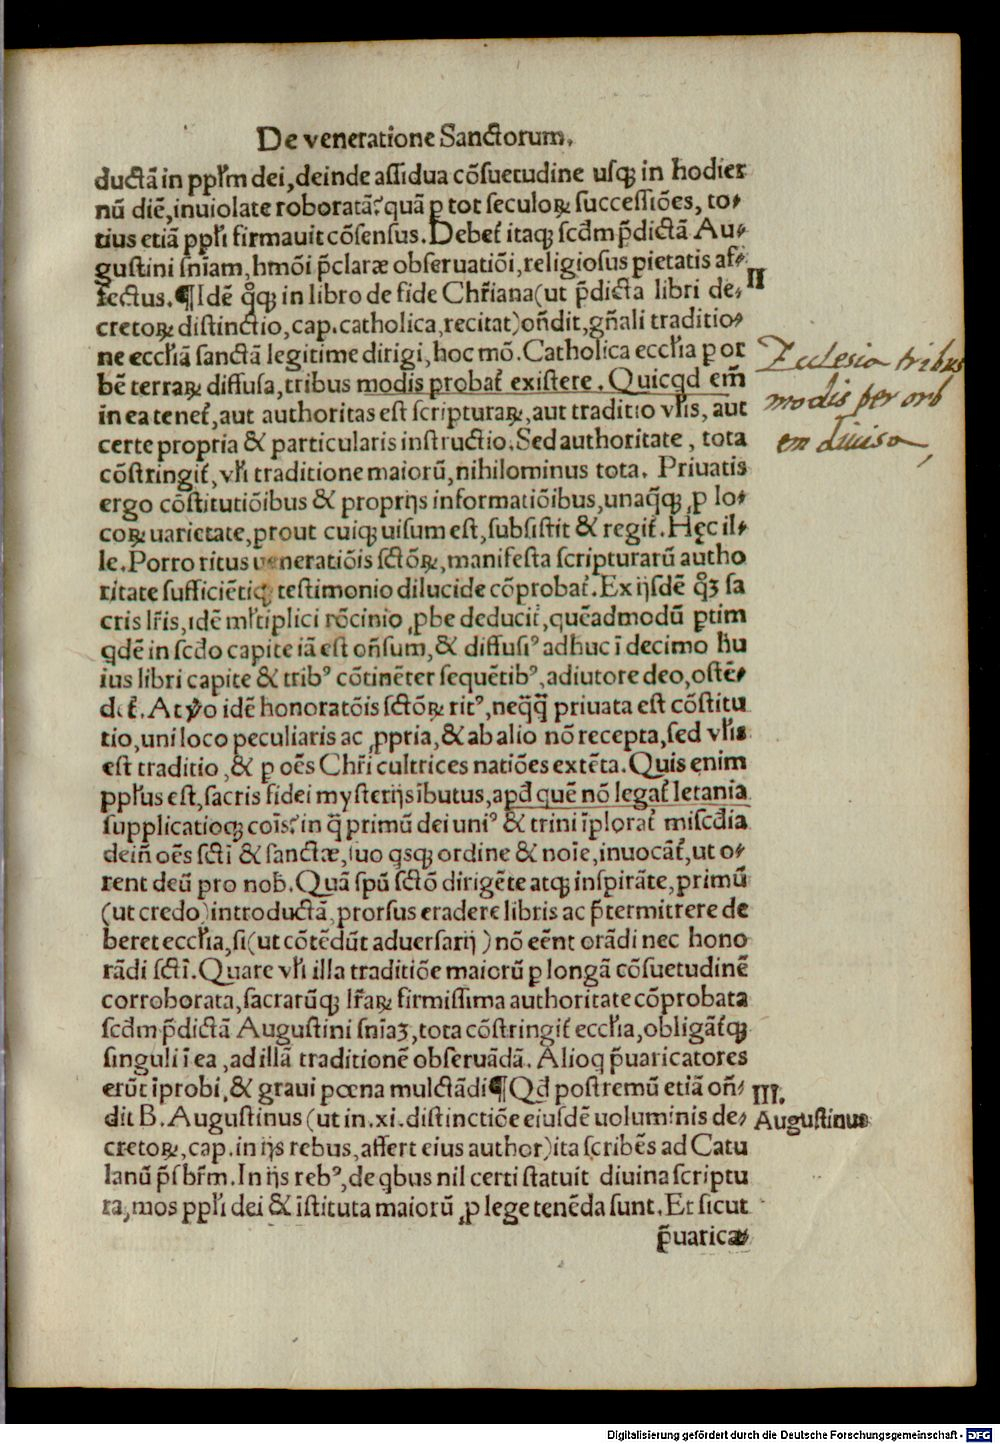 De veneratione Sanctorum.
ductā in ppłm dei, deinde assidua cōsuetudine usq; in hodier
nū diē, inuiolate roboratā: quā ꝑ tot seculoꝝ successiōes, to-
tius etiā ppłi firmauit cōsensus. Debet᷑ itaq; scd̄m p̄dictā Au-
gustini sn̄iam, hmōi p̄claræ obseruatiōi, religiosus pietatis af-
fectus. ¶ Idē qͦq; in libro de fide Chr̄iana (ut p̄dicta libri de-
II
cretoꝝ distinctio, cap. catholica, recitat) on̄dit, gn̄ali traditio-
ne eccłiā sanctā legitime dirigi, hoc mō. Catholica eccłia ꝑ or
bē terraꝝ diffusa, tribus modis probat᷑ existere. Quicqd em̄
in ea tenet᷑, aut authoritas est scripturaꝝ, aut traditio vłis, aut
certe propria & particularis instructio. Sed authoritate, tota
cōstringit᷑, vłi traditione maiorū, nihilominus tota. Priuatis
ergo cōstitutiōibus & proprijs informatiōibus, unaq̄q;, ꝓ lo-
coꝝ uarietate, prout cuiq; uisum est, subsistit & regit᷑. Hęc il-
le. Porro ritus veneratiōis sctōꝝ, manifesta scripturarū autho
ritate sufficiētiq; testimonio dilucide cōprobat᷑. Ex ijsdē qͦꝫ sa
cris łris, idē młtiplici rōcinio ꝓbe deducit᷑, quēadmodū ꝑtim
qdē in scdo capite iā est on̄sum, & diffusiꝰ adhuc ī decimo hu
ius libri capite & tribꝰ cōtinēter sequētibꝰ, adiutore deo, ostē-
det᷑. At ṽo idē honoratōis sctōꝝ ritꝰ, neq̄q̄ priuata est cōstitu
tio, uni loco peculiaris ac ꝓpria, & ab alio nō recepta, sed vłis
est traditio, & ꝑ oēs Chr̄i cultrices natiōes extēta. Quis enim
ppłus est, sacris fidei mysterijs ībutus, apd̄ quē nō legat᷑ letania
supplicatioq; coīs: in q̄ primū dei uniꝰ & trini īplorat᷑ miscd̄ia
dein̄ oēs sctī & sanctæ, suo qsq; ordine & noīe, inuocāt᷑, ut o-
rent deū pro nob̄. Quā spū sctō dirigēte atq; inspirāte, primū
(ut credo) introductā, prorsus eradere libris ac p̄termittere de
beret eccłia, si (ut cōtēdūt aduersarij) nō eēnt orādi nec hono
rādi sctī. Quare vłi illa traditiōe maiorū ꝑ longā cōsuetudinē
corroborata, sacrarūq; łraꝝ firmissima authoritate cōprobata
scd̄m p̄dictā Augustini sn̄iaꝫ, tota cōstringit᷑ eccłia, obligāt᷑q;
singuli ī ea, ad illā traditionē obseruādā. Alioq p̄uaricatores
erūt īprobi, & graui pœna mulctādi ¶ Qd̄ postremū etiā on̄-
III.
dit B. Augustinus (ut in .xi. distinctiōe eiusdē uoluminis de-
Augustinus
cretoꝝ, cap. in ijs rebus, affert eius author) ita scribēs ad Catu
lanū p̄sbr̄m. In ijs rebꝰ, de qbus nil certi statuit diuina scriptu
ra, mos ppłi dei & īstituta maiorū ꝓ lege tenēda sunt. Et sicut
p̄uarica-
Ecclesia tribus
modis per orb
em diuisa,
Digitalisierung gefördert durch die Deutsche Forschungsgemeinschaft - DFG